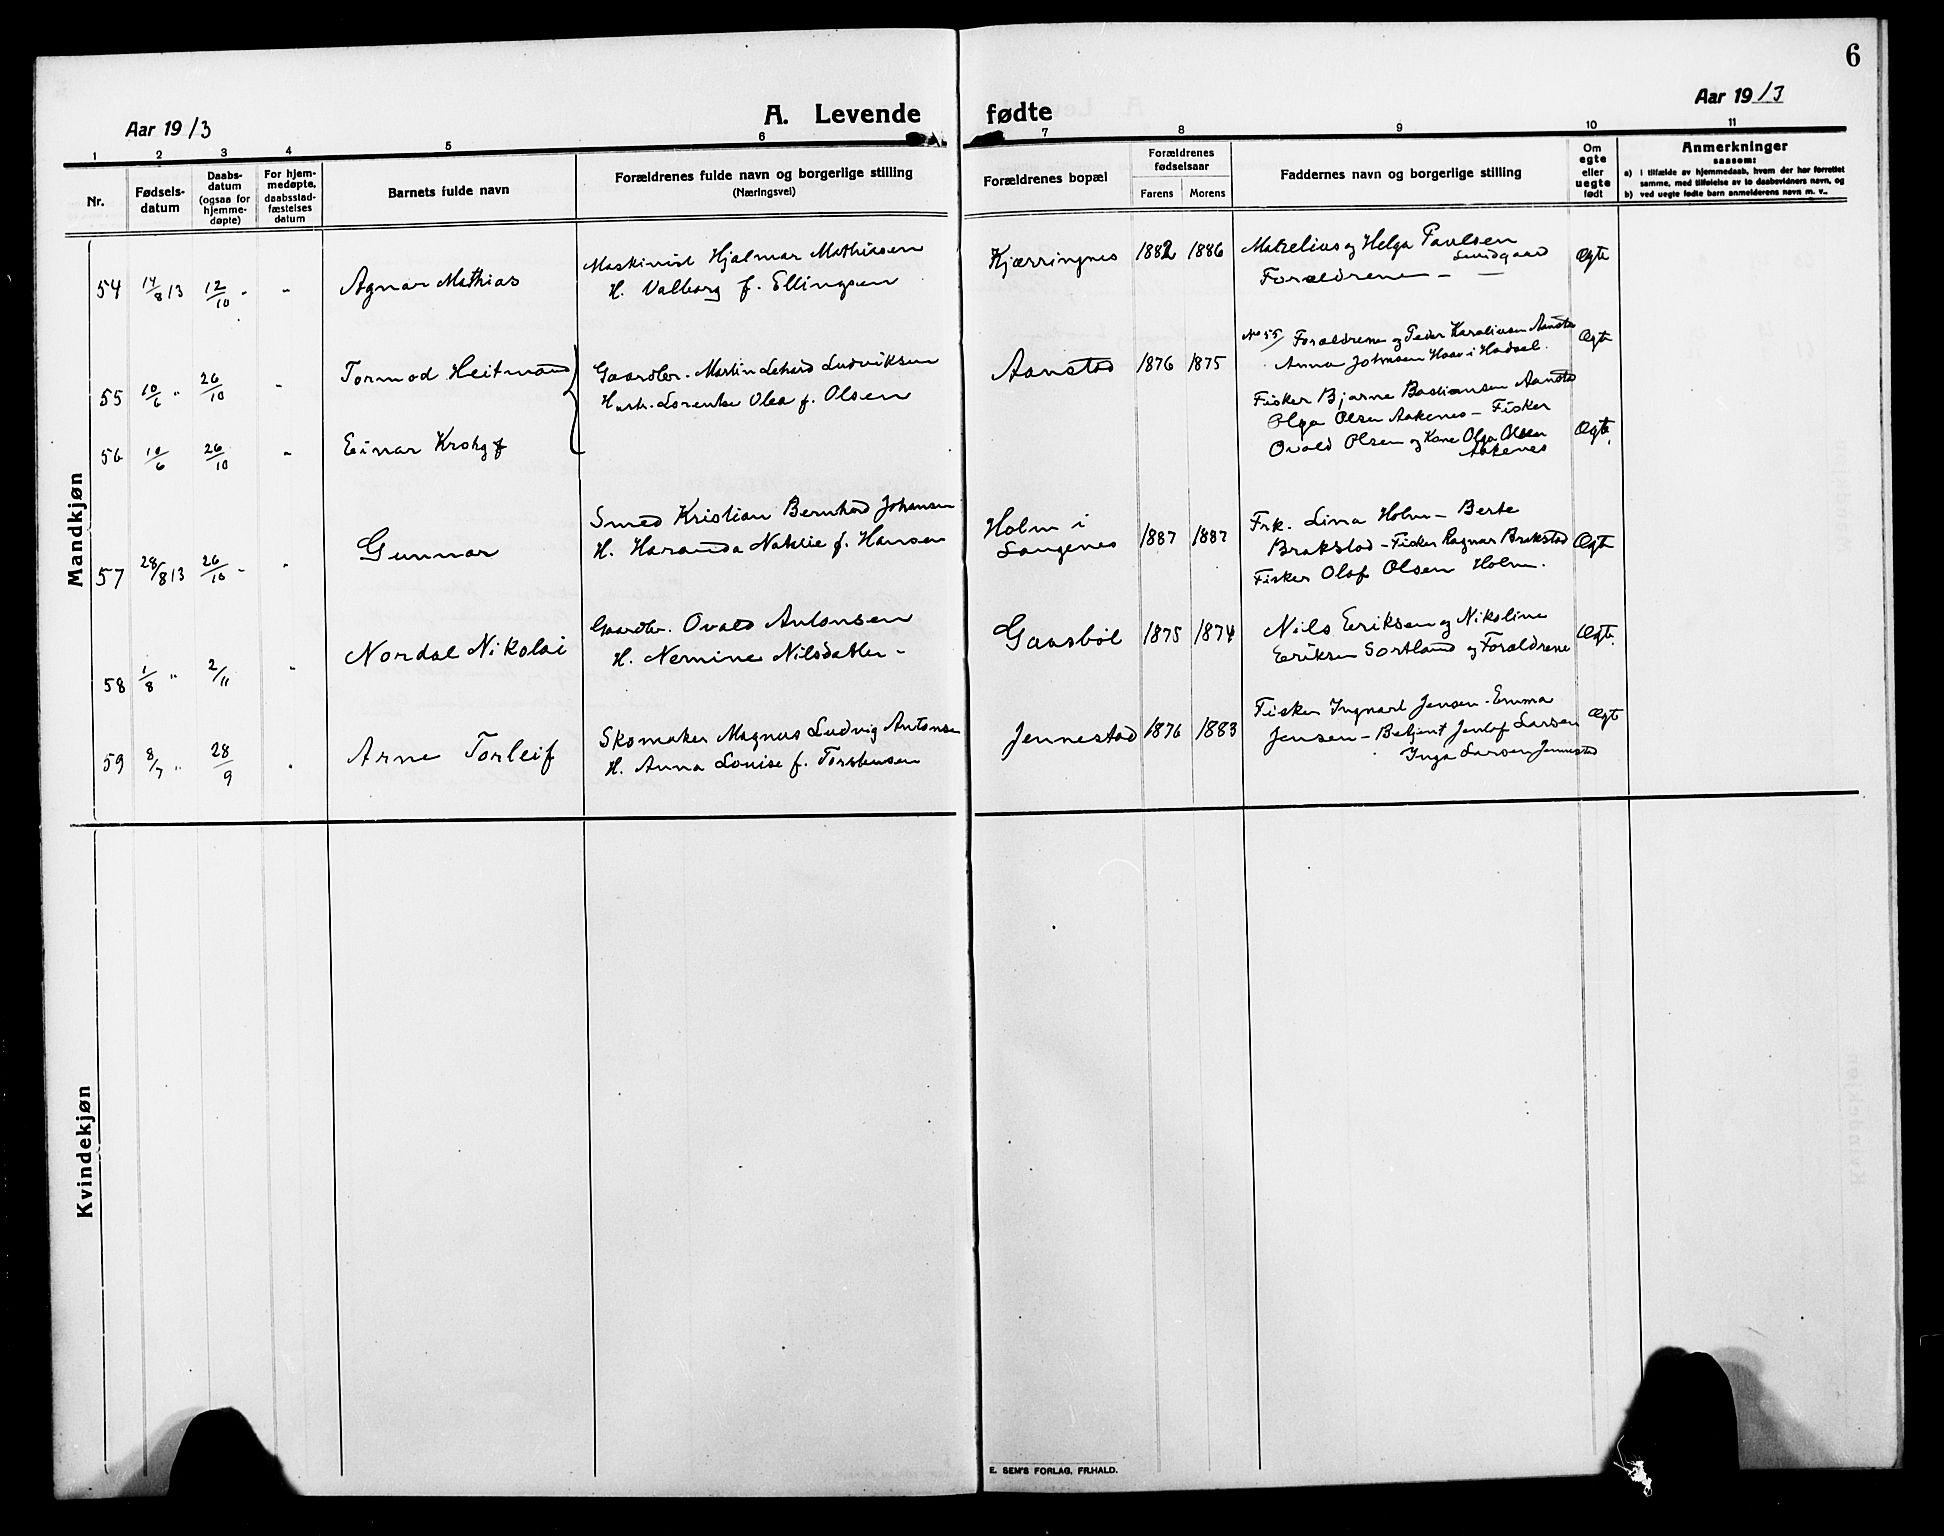 6
Aar 1913
A. Levende fødte
Aar 1913
1 2 3 4 5 6 7 8 9 10 11
Nr.
Fødsels-
datum
Daabs-
datum
(ogsaa for
hjemme-
døpte)
For hjem-
medøpte,
daabsstad-
fæstelses
datum
Barnets fulde navn
Forældrenes fulde navn og borgerlige stilling
(Næringsvei)
Forældrenes bopæl
Forældrenes
fødselsaar
Farens Morens
Faddernes navn og borgerlige stilling
Om
egte
eller
uegte
født
Anmerkninger
saasom:
a) i tilfælde av hjemmedaab, hvem der har forrettet
samme, med tilføielse av to daabsvidners navn, og
b) ved uegte fødte barn anmelderens navn m. v..
Mandkjøn
54 14/8 13 12/10 - - Agnar Mathias
Maskinist Hjalmar Mathiesen
H. Valborg f. Ellingsen
Kjærringnes 1882 1886
og Helga Paulsen
Forældrene — —
Ægte
55 10/6 " 26/10 - Tormod Heitmann
Gaardbr. Martin Ludviksen
Hustr. Lorentse Olea f. Olsen
Aanstad 1876 1875
No 55/ Forældrene og Peder Karoliusen Aanstad
Anna Johnsen Haav i Hadsel.
Ægte
56 10/6 26/10 - Einar Krohg
Fisker Bjarne Bastiansen Aanstad
Olga Olsen Aakenes - Fisker
Ovald Olsen og Kone Olga Olsen
Aakenes
Ægte.
57 28/8 13 26/10 - - Gunnar
Smed Kristian Bernhard Johansen
H. f. Hansen
Holm i
Langenes 1887 1887
Frk. Lina Holm - Berte
Brakstad - Fisker Ragnar Brakstad
Fisker Olaf Olsen Holm.
Ægte
58 1/8 " 2/11 - Nordal Nikolai
Gaardbr. Ovald Antonsen
H. Nermine Nilsdatter -
Gaasbøl 1875 1874
Nils Eriksen og Nikoline
Eriksen Sortland og Forældrene
Ægte.
59 8/7 " 28/9 - Arne Torleif
Skomaker Magnus Ludvig Antonsen
H. Anna Louise f. Torstensen
Jennestad 1876 1883
Fisker Ingvart Jensen - Emma
Jensen - Betjent Jentof Larsen
Inga Larsen Jennestad
Ægte
Kvindekjøn
E. SEM'S FORLAG, FR.HALD.